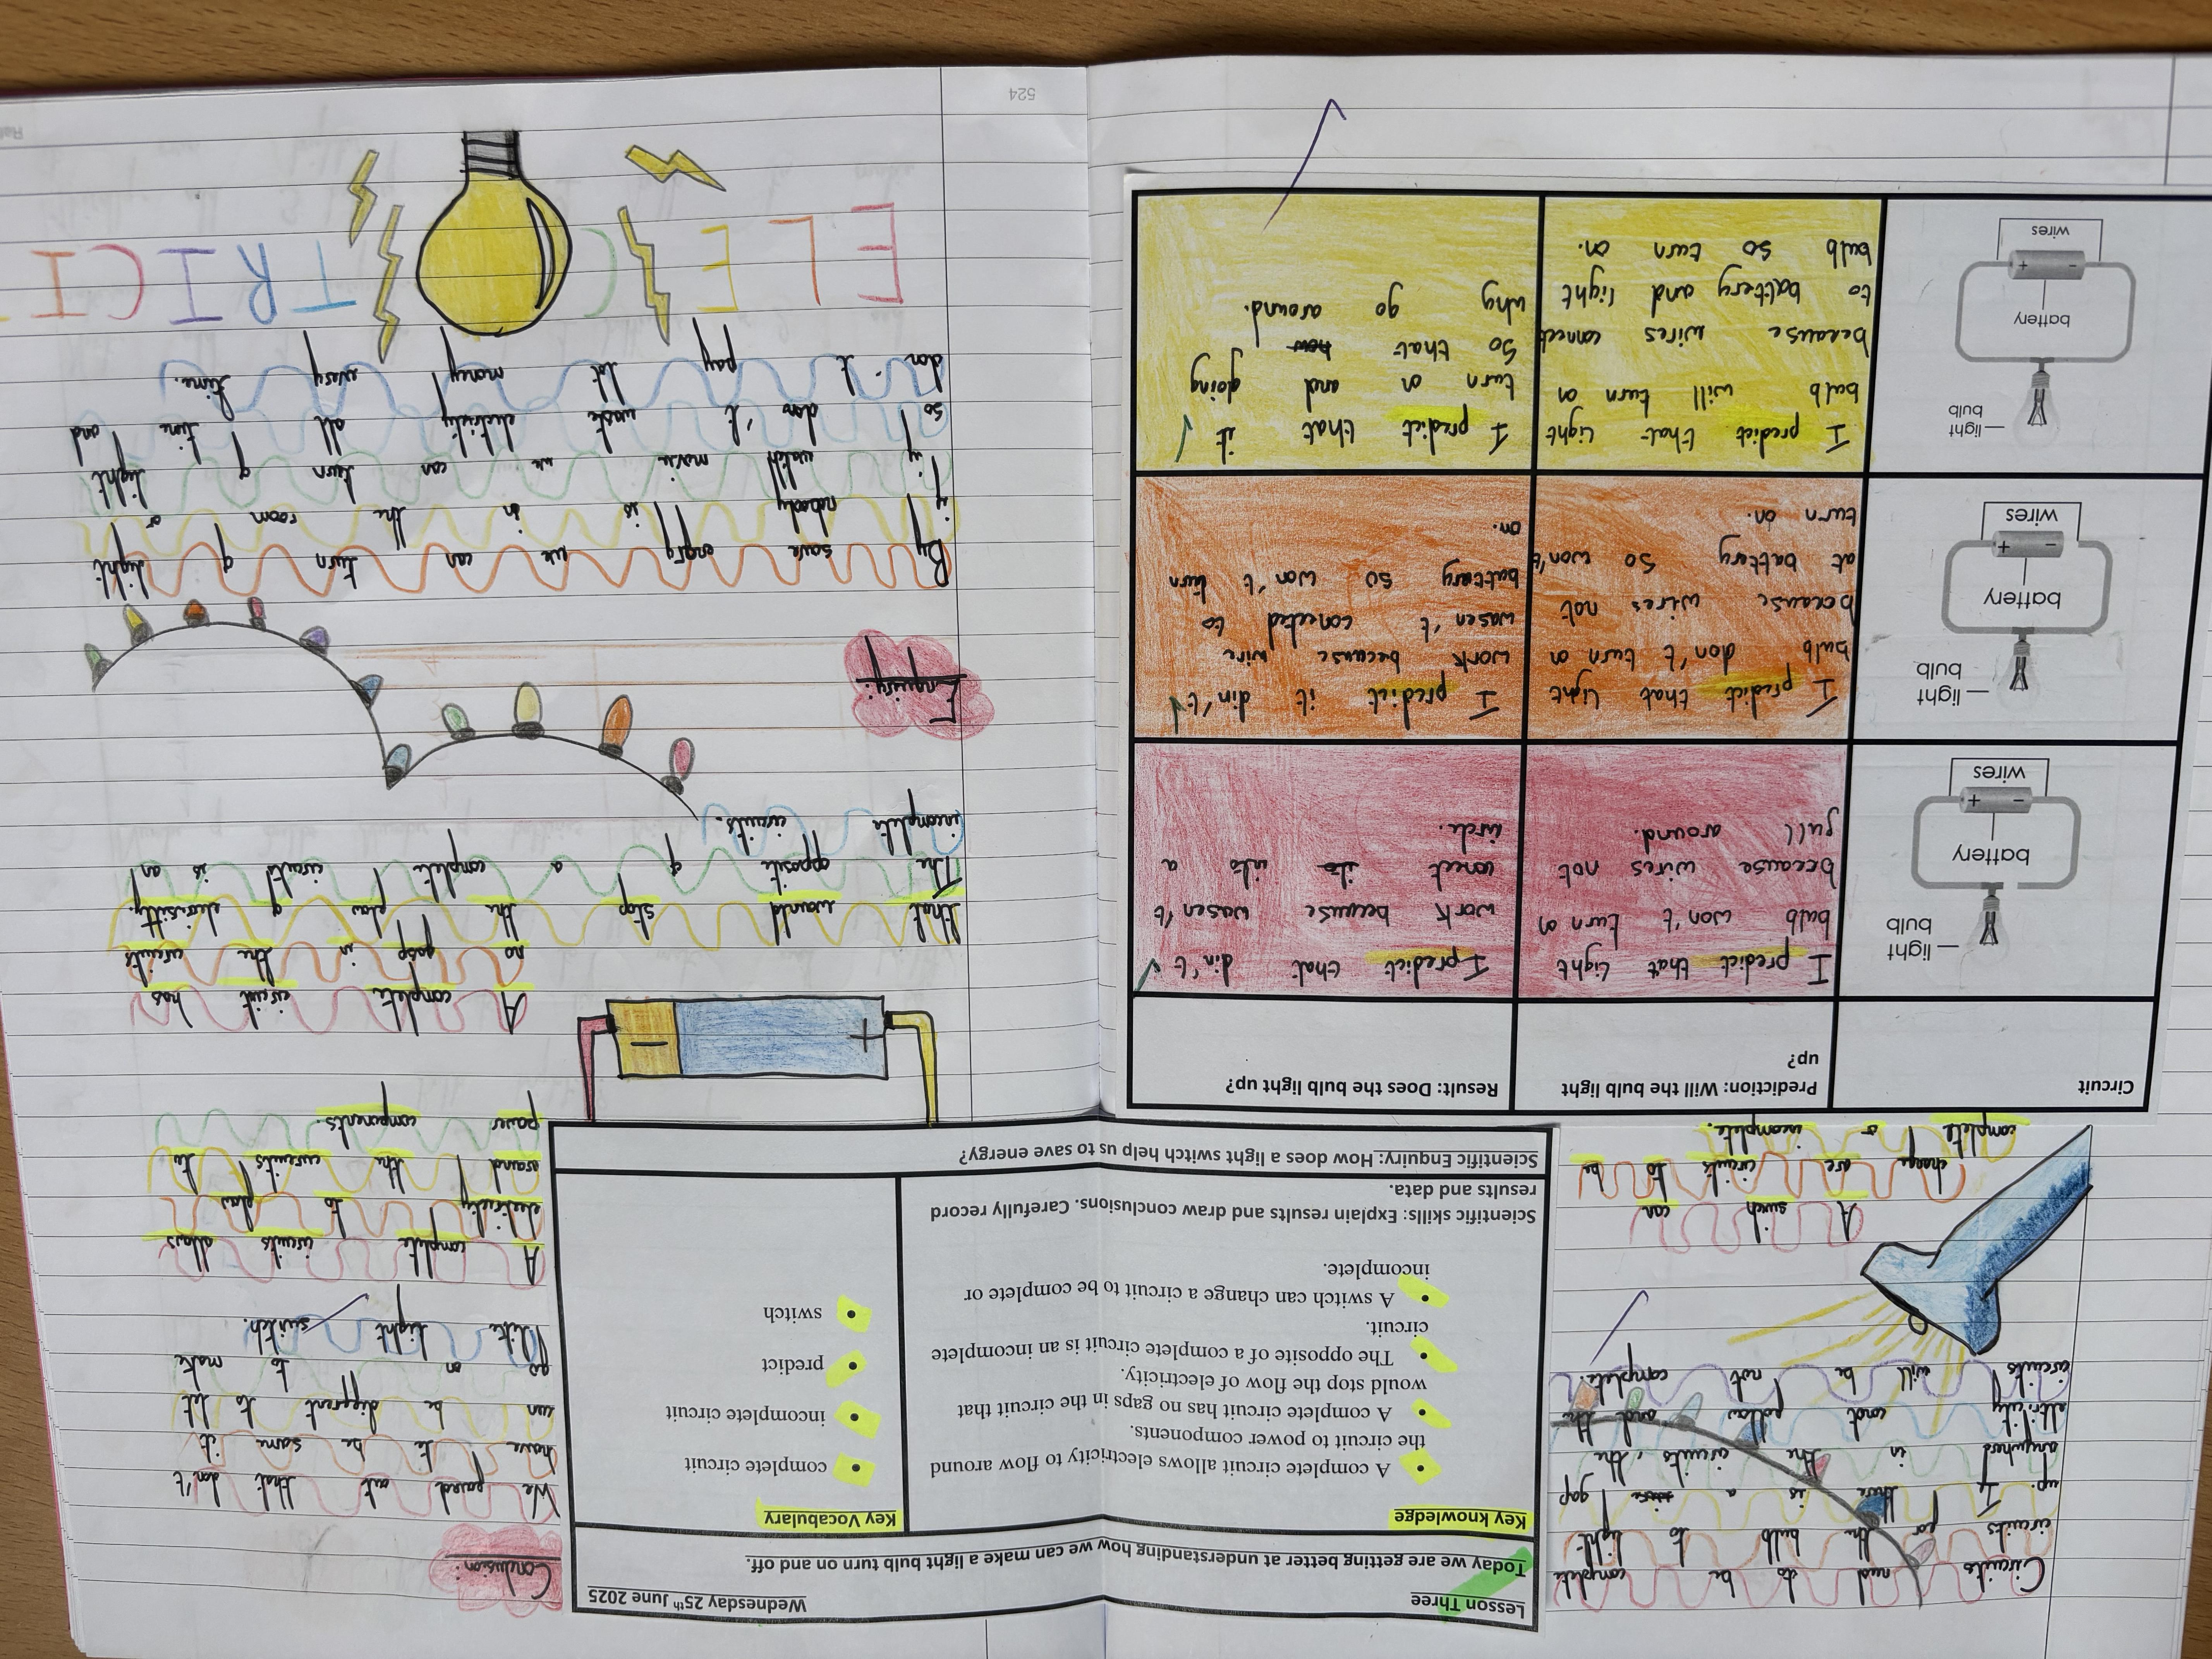 Circuits need to be complete
circuits for the bulb to light
up. If there is a gap
anywhere in the circuits, the
eltricity cant follow and the
circuits will be not complete.
A swich can
change are circuits to be
complete or incomplete.
Lesson Three
Wednesday 25th June 2025
Today we are getting better at understanding how we can make a light bulb turn on and off.
Key knowledge
• A complete circuit allows electricity to flow around
the circuit to power components.
• A complete circuit has no gaps in the circuit that
would stop the flow of electricity.
• The opposite of a complete circuit is an incomplete
circuit.
• A switch can change a circuit to be complete or
incomplete.
Scientific skills: Explain results and draw conclusions. Carefully record
results and data.
Key Vocabulary
• complete circuit
• incomplete circuit
• predict
• switch
Scientific Enquiry: How does a light switch help us to save energy?
Circuit
Prediction: Will the bulb light
up?
Result: Does the bulb light up?
light
bulb
battery
- +
wires
I predict that light
bulb won't turn on
because wires not
full around.
I predict that din't
work because wasen't
conect into a
circle.
light
bulb
battery
- +
wires
I predict that light
bulb don't turn on
because wires not
at battery so won't
turn on.
I predict it din't
work because wire
wasen't conected to
battary so won't turn
on.
light
bulb
battery
- +
wires
I predict that light
bulb will turn on
because wires connect
to battery and light
bulb so turn on.
I predict that it
turn on and going
so that
why go around.
Conclusion:
We out that don't
have to be same it
can be different to let
go on off to make
like light switch.
A complete circuits allows
electricity to flow
around the circuits to
power components.
+ −
A complete circuit has
no gasp in the circuits
that would stop the flow of electrisitiy.
The opposite of a complete circuits is an
incomplete circuits.
Enquiry:
By save engry we can turn of light
if nobody is in the room or
if y watch movie we can turn of light
so don't waste eletricity all time and
don't pay lot money every time.
ELECTRICI
524